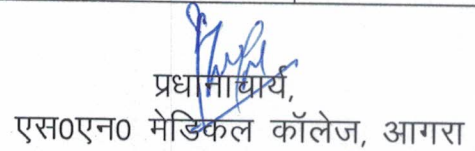 प्रधानाचार्य,
एस0एन0 मेडिकल कॉलेज, आगरा